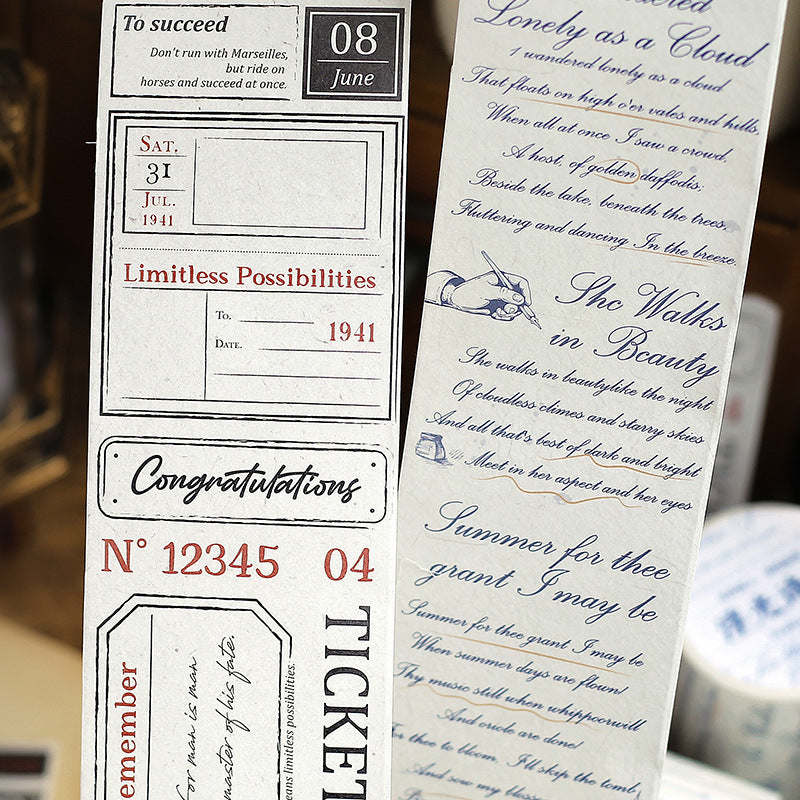 To succeed
Don't run with Marseilles,
but ride on
horses and succeed at once.
08
June
SAT.
31
JUL.
1941
Limitless Possibilities
TO.
DATE.
1941
Congratulations
N° 12345
04
emember
for man is man
master of his fate.
eans limitless possibilities.
TICKET
Lonely as a Cloud
I wandered lonely as a cloud
That floats on high o'er vales and hills,
When all at once I saw a crowd,
A host, of golden daffodis:
Beside the lake, beneath the trees,
Fluttering and dancing In the breeze.
She Walks
in Beauty
She walks in beautylike the night
Of cloudless climes and starry skies
And all that's best of dark and bright
Meet in her aspect and her eyes
Summer for thee
grant I may be
Summer for thee grant I may be
When summer days are flown!
Thy music still when whippoorwill
And oriole are done!
For thee to bloom, I'll skip the tomb
And sow my blossoms